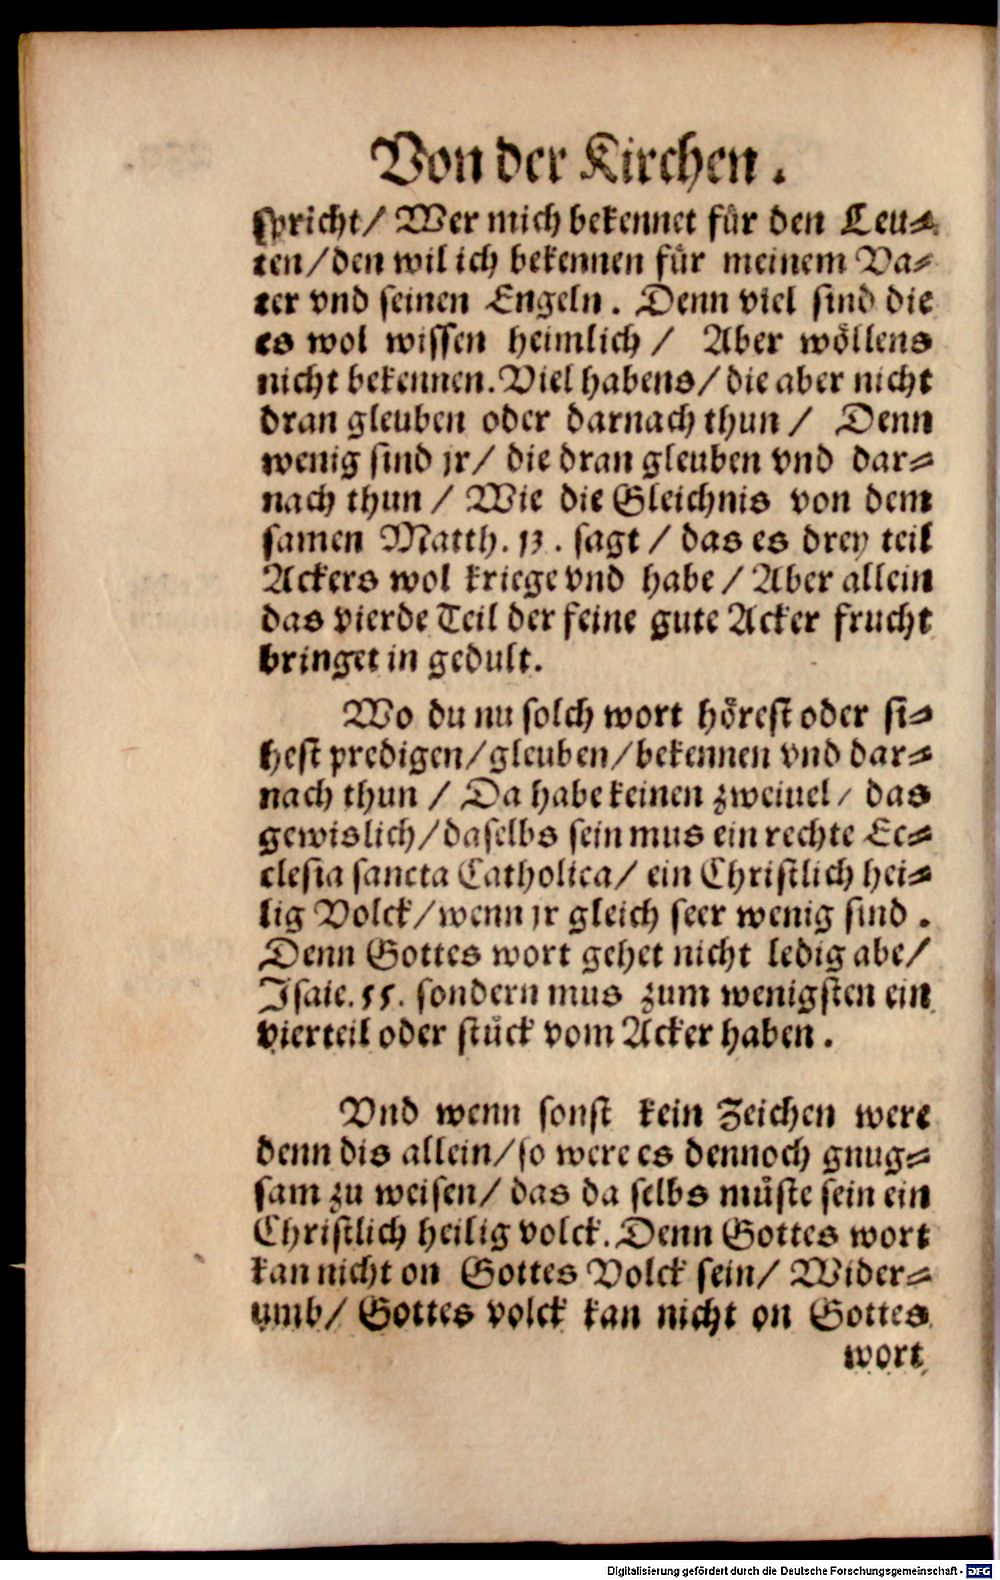 Von der Kirchen.
spricht/ Wer mich bekennet für den Leu⸗
ten/den wil ich bekennen für meinem Va⸗
ter vnd seinen Engeln. Denn viel sind die
es wol wissen heimlich/ Aber wöllens
nicht bekennen. Viel habens/ die aber nicht
dran gleuben oder darnach thun/ Denn
wenig sind jr/ die dran gleuben vnd dar⸗
nach thun/ Wie die Gleichnis von dem
samen Matth. 13. sagt/ das es drey teil
Ackers wol kriege vnd habe/ Aber allein
das vierde Teil der feine gute Acker frucht
bringet in gedult.
Wo du nu solch wort hörest oder si⸗
hest predigen/gleuben/bekennen vnd dar⸗
nach thun/ Da habe keinen zweiuel/ das
gewislich/daselbs sein mus ein rechte Ec⸗
clesia sancta Catholica/ ein Christlich hei⸗
lig Volck/wenn jr gleich seer wenig sind.
Denn Gottes wort gehet nicht ledig abe/
Isaie. 55. sondern mus zum wenigsten ein
vierteil oder stück vom Acker haben.
Vnd wenn sonst kein Zeichen were
denn dis allein/so were es dennoch gnug⸗
sam zu weisen/ das da selbs müste sein ein
Christlich heilig volck. Denn Gottes wort
kan nicht on Gottes Volck sein/ Wider⸗
umb/ Gottes volck kan nicht on Gottes
wort
Digitalisierung gefördert durch die Deutsche Forschungsgemeinschaft - DFG